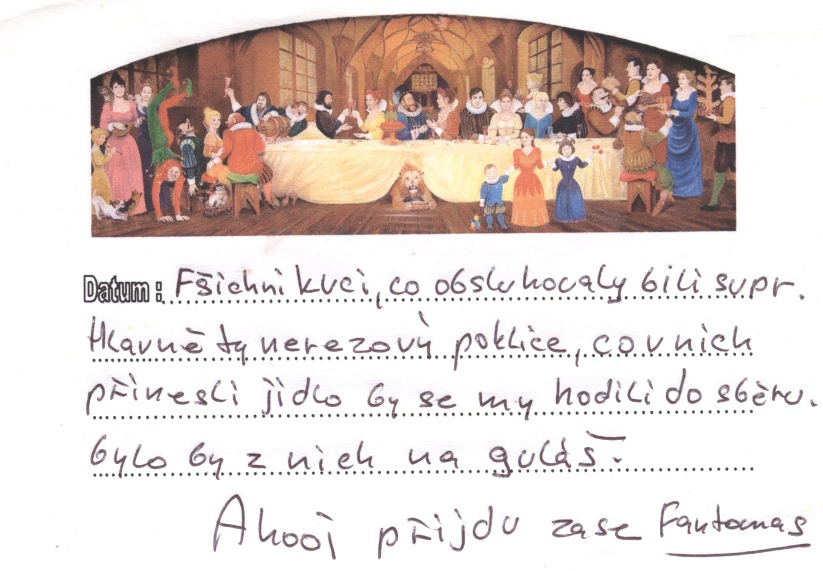 Datum: Fšichni kluci, co obsluhovaly bili supr.
Hlavně ty nerezový poklice, co v nich
přinesli jídlo by se my hodili do sběru.
bylo by z nich na guláš.
Ahooj přijdu zase Fantomas